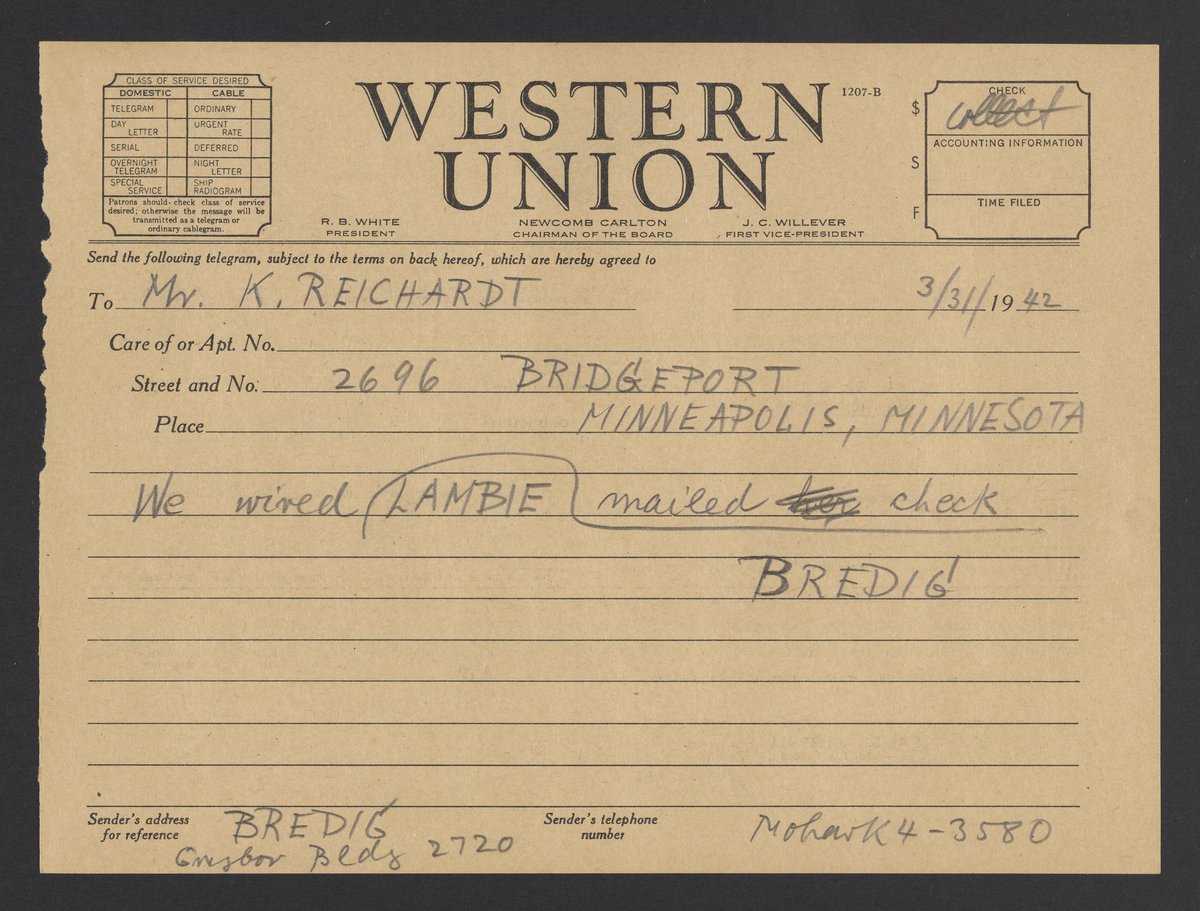 CLASS OF SERVICE DESIRED
DOMESTIC CABLE
TELEGRAM ORDINARY
DAY LETTER URGENT RATE
SERIAL DEFERRED
OVERNIGHT TELEGRAM NIGHT LETTER
SPECIAL SERVICE SHIP RADIOGRAM
Patrons should check class of service
desired; otherwise the message will be
transmitted as a telegram or
ordinary cablegram.
WESTERN
UNION
1207-B
R. B. WHITE
PRESIDENT
NEWCOMB CARLTON
CHAIRMAN OF THE BOARD
J. C. WILLEVER
FIRST VICE-PRESIDENT
$
S
F
CHECK
collect
ACCOUNTING INFORMATION
TIME FILED
Send the following telegram, subject to the terms on back hereof, which are hereby agreed to
To Mr. K. REICHARDT 3/31/ 19 42
Care of or Apt. No.
Street and No. 2696 BRIDGEPORT
Place MINNEAPOLIS, MINNESOTA
We wired LAMBIE mailed her check
BREDIG
Sender's address
for reference
BREDIG
Bldg 2720
Sender's telephone
number
Mohawk 4-3580